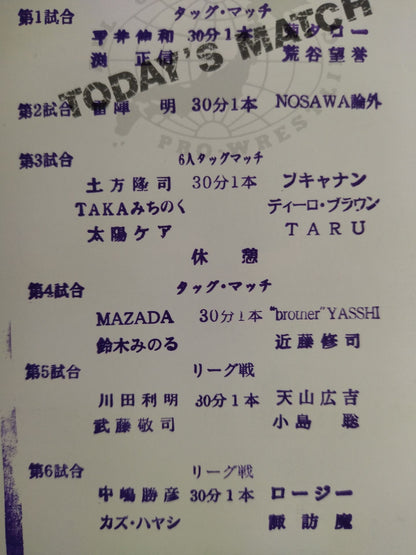 第1試合 タッグ・マッチ
平井伸和 30分1本
渕 正信 荒谷望誉
TODAY'S MATCH
PRO-WRESTLING
第2試合 雷陣 明 30分1本 NOSAWA論外
第3試合 6人タッグマッチ
土方隆司 30分1本 ブキャナン
TAKAみちのく ディーロ・ブラウン
太陽ケア TARU
休憩
第4試合 タッグ・マッチ
MAZADA 30分1本 "brother"YASSHI
鈴木みのる 近藤修司
第5試合 リーグ戦
川田利明 30分1本 天山広吉
武藤敬司 小島 聡
第6試合 リーグ戦
中嶋勝彦 30分1本 ロージー
カズ・ハヤシ 諏訪魔